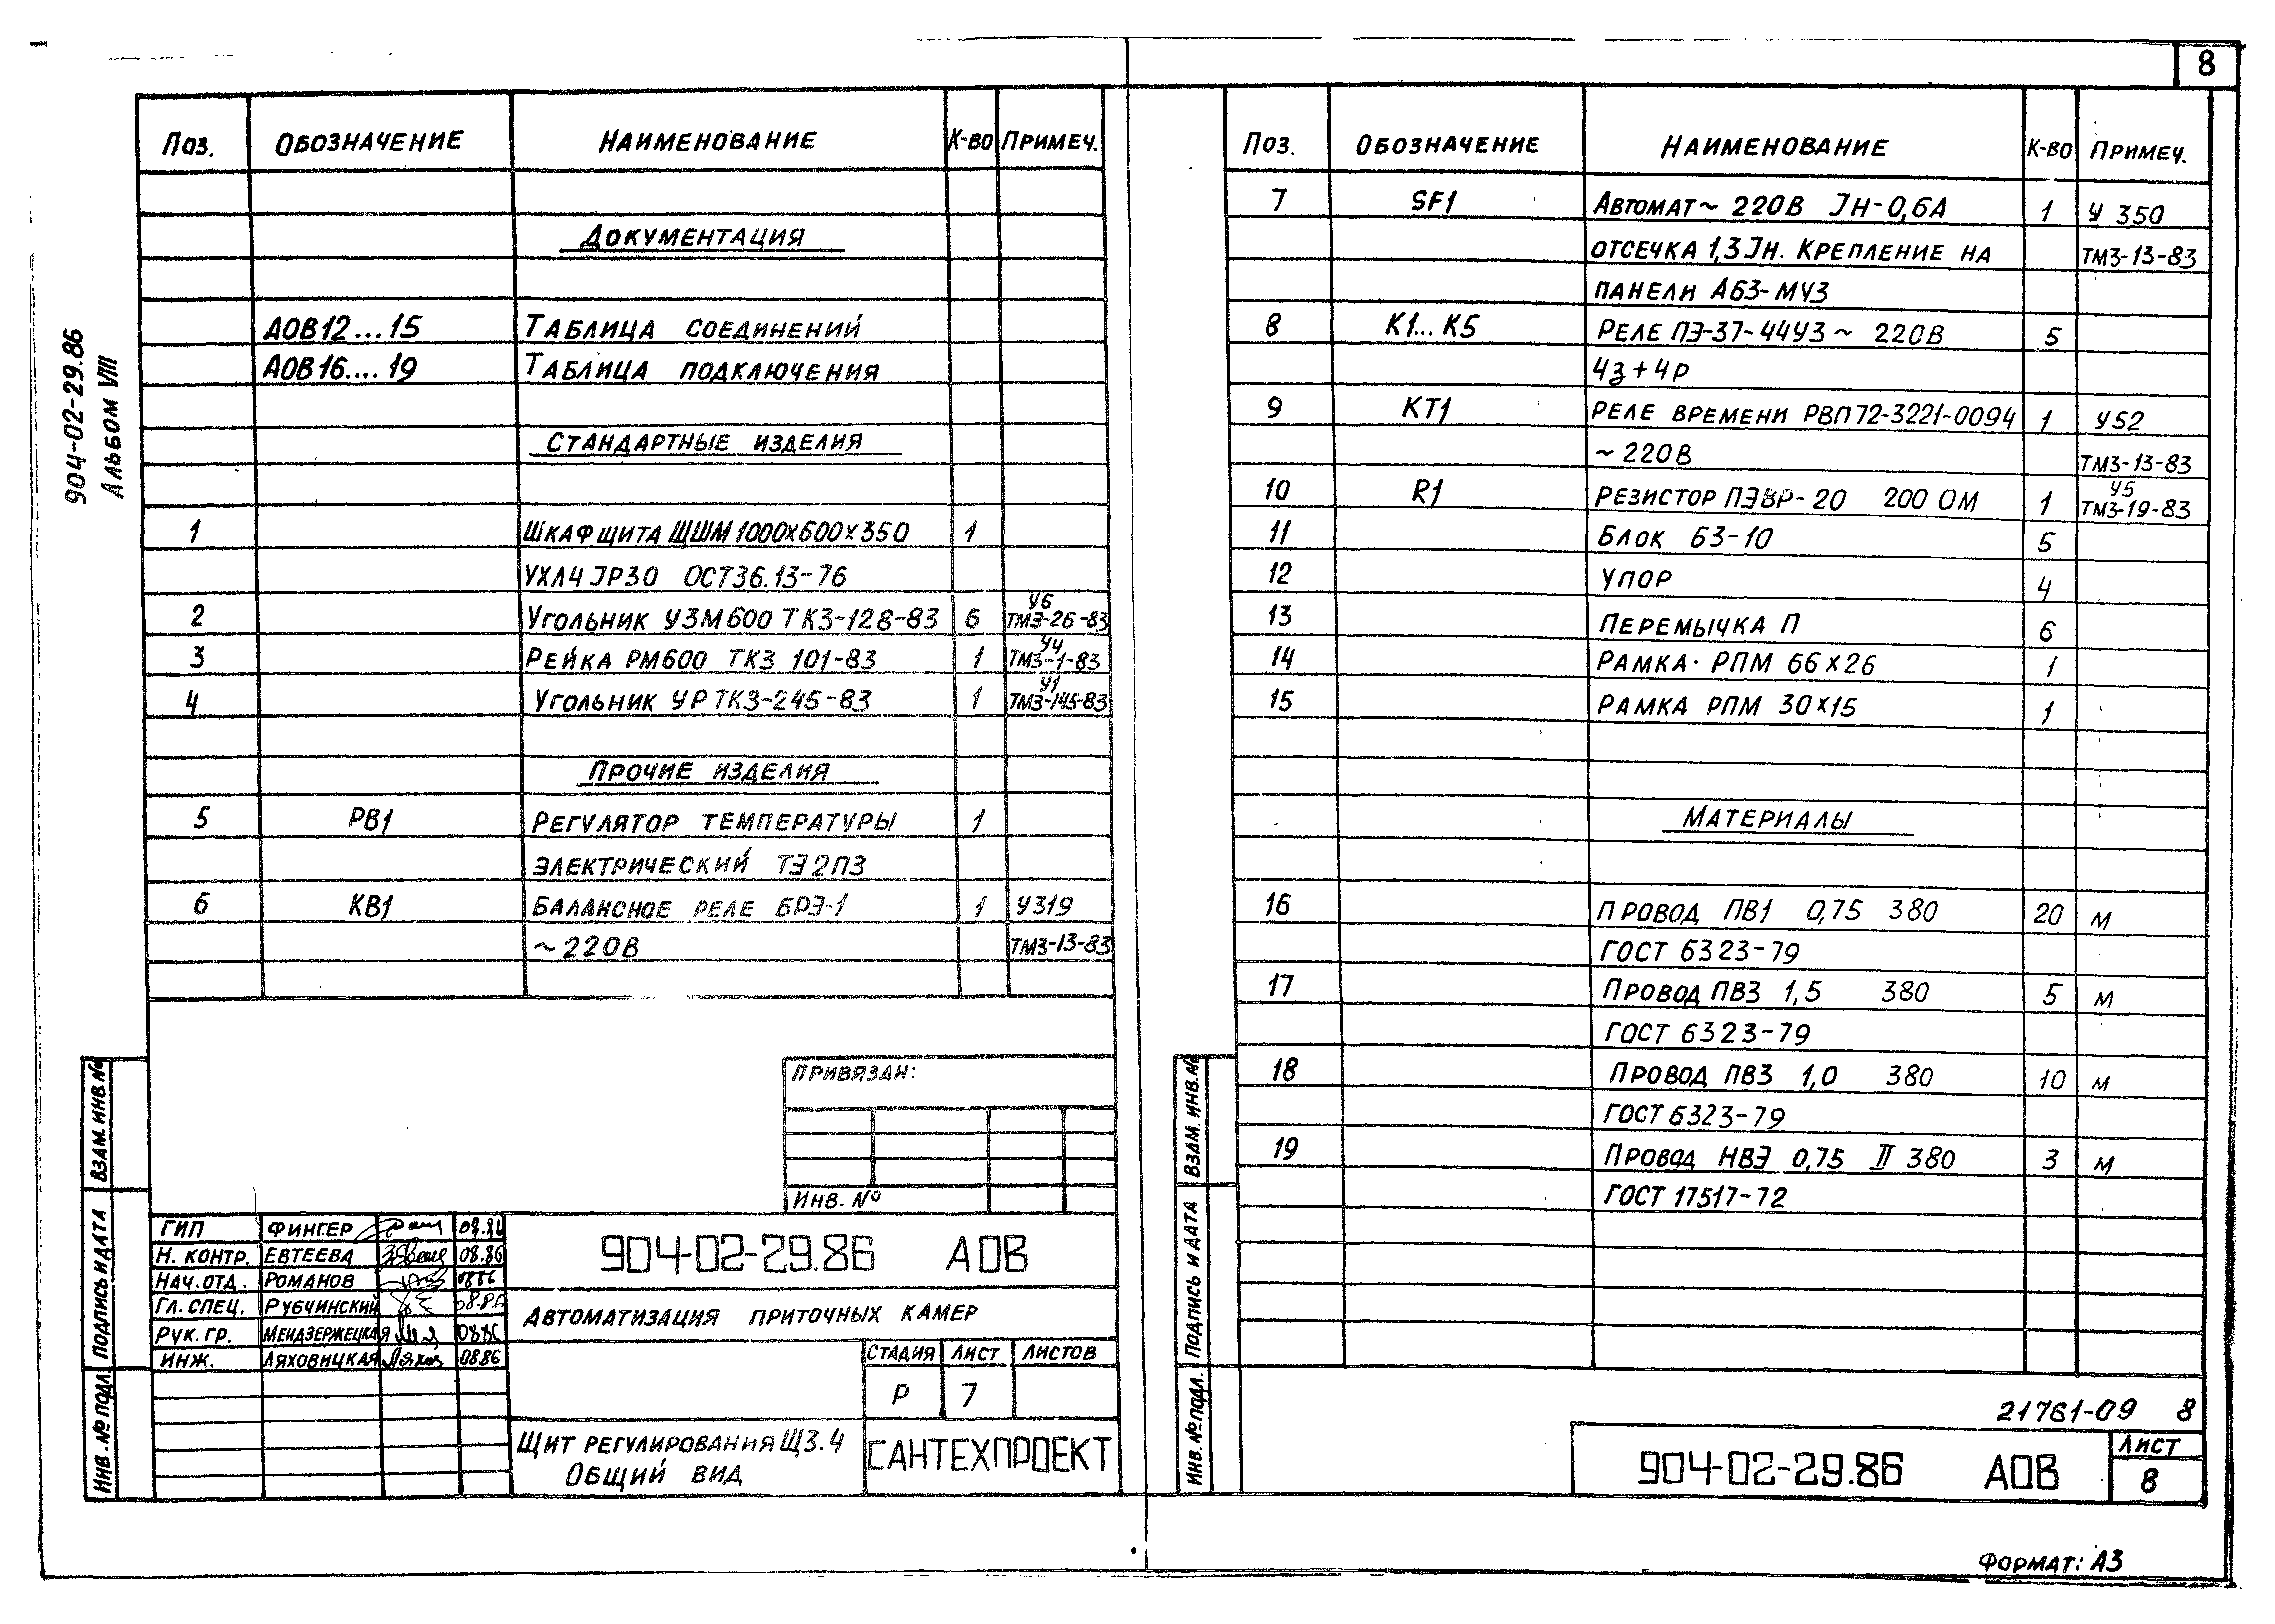 8
904-02-29.86
Альбом VIII
Поз. Обозначение Наименование К-во Примеч.
Документация
АОВ12...15 Таблица соединений
АОВ16....19 Таблица подключения
Стандартные изделия
1 Шкаф щита ЩШМ 1000х600х350 1
УХЛ4 JP30 ОСТ36.13-76
2 Угольник УЗМ600 ТКЗ-128-83 6 У6 ТМЗ-26-83
3 Рейка РМ600 ТКЗ 101-83 1 У4 ТМЗ-1-83
4 Угольник УР ТКЗ-245-83 1 У1 ТМЗ-145-83
Прочие изделия
5 РВ1 Регулятор температуры 1
электрический ТЭ2ПЗ
6 КВ1 Балансное реле БРЭ-1 1 У319
~220В ТМЗ-13-83
Привязан:
Инв. №
ГИП Фингер 08.86
Н. контр. Евтеева 08.86
Нач. отд. Романов 0886
Гл. спец. Рубчинский 08.86
Рук. гр. Мендзержецкая 0886
Инж. Ляховицкая 0886
904-02-29.86 АОВ
Автоматизация приточных камер
Стадия Лист Листов
Р 7
Щит регулирования Щ3.4
Общий вид
САНТЕХПРОЕКТ
Взам. инв. №
Подпись и дата
Инв. № подл.
Поз. Обозначение Наименование К-во Примеч.
7 SF1 Автомат ~ 220В Jн-0,6А 1 У 350
отсечка 1,3Jн. Крепление на ТМЗ-13-83
панели А63-МУЗ
8 К1...К5 Реле ПЭ-37-44УЗ ~ 220В 5
4з+4р
9 КТ1 Реле времени РВП72-3221-0094 1 У52
~220В ТМЗ-13-83
10 R1 Резистор ПЭВР-20 200 Ом 1 У5 ТМЗ-19-83
11 Блок БЗ-10 5
12 Упор 4
13 Перемычка П 6
14 Рамка РПМ 66х26 1
15 Рамка РПМ 30х15 1
Материалы
16 Провод ПВ1 0,75 380 20 м
ГОСТ 6323-79
17 Провод ПВ3 1,5 380 5 м
ГОСТ 6323-79
18 Провод ПВ3 1,0 380 10 м
ГОСТ 6323-79
19 Провод НВЭ 0,75 II 380 3 м
ГОСТ 17517-72
Взам. инв. №
Подпись и дата
Инв. № подл.
21761-09 8
904-02-29.86 АОВ
Лист
8
Формат: А3